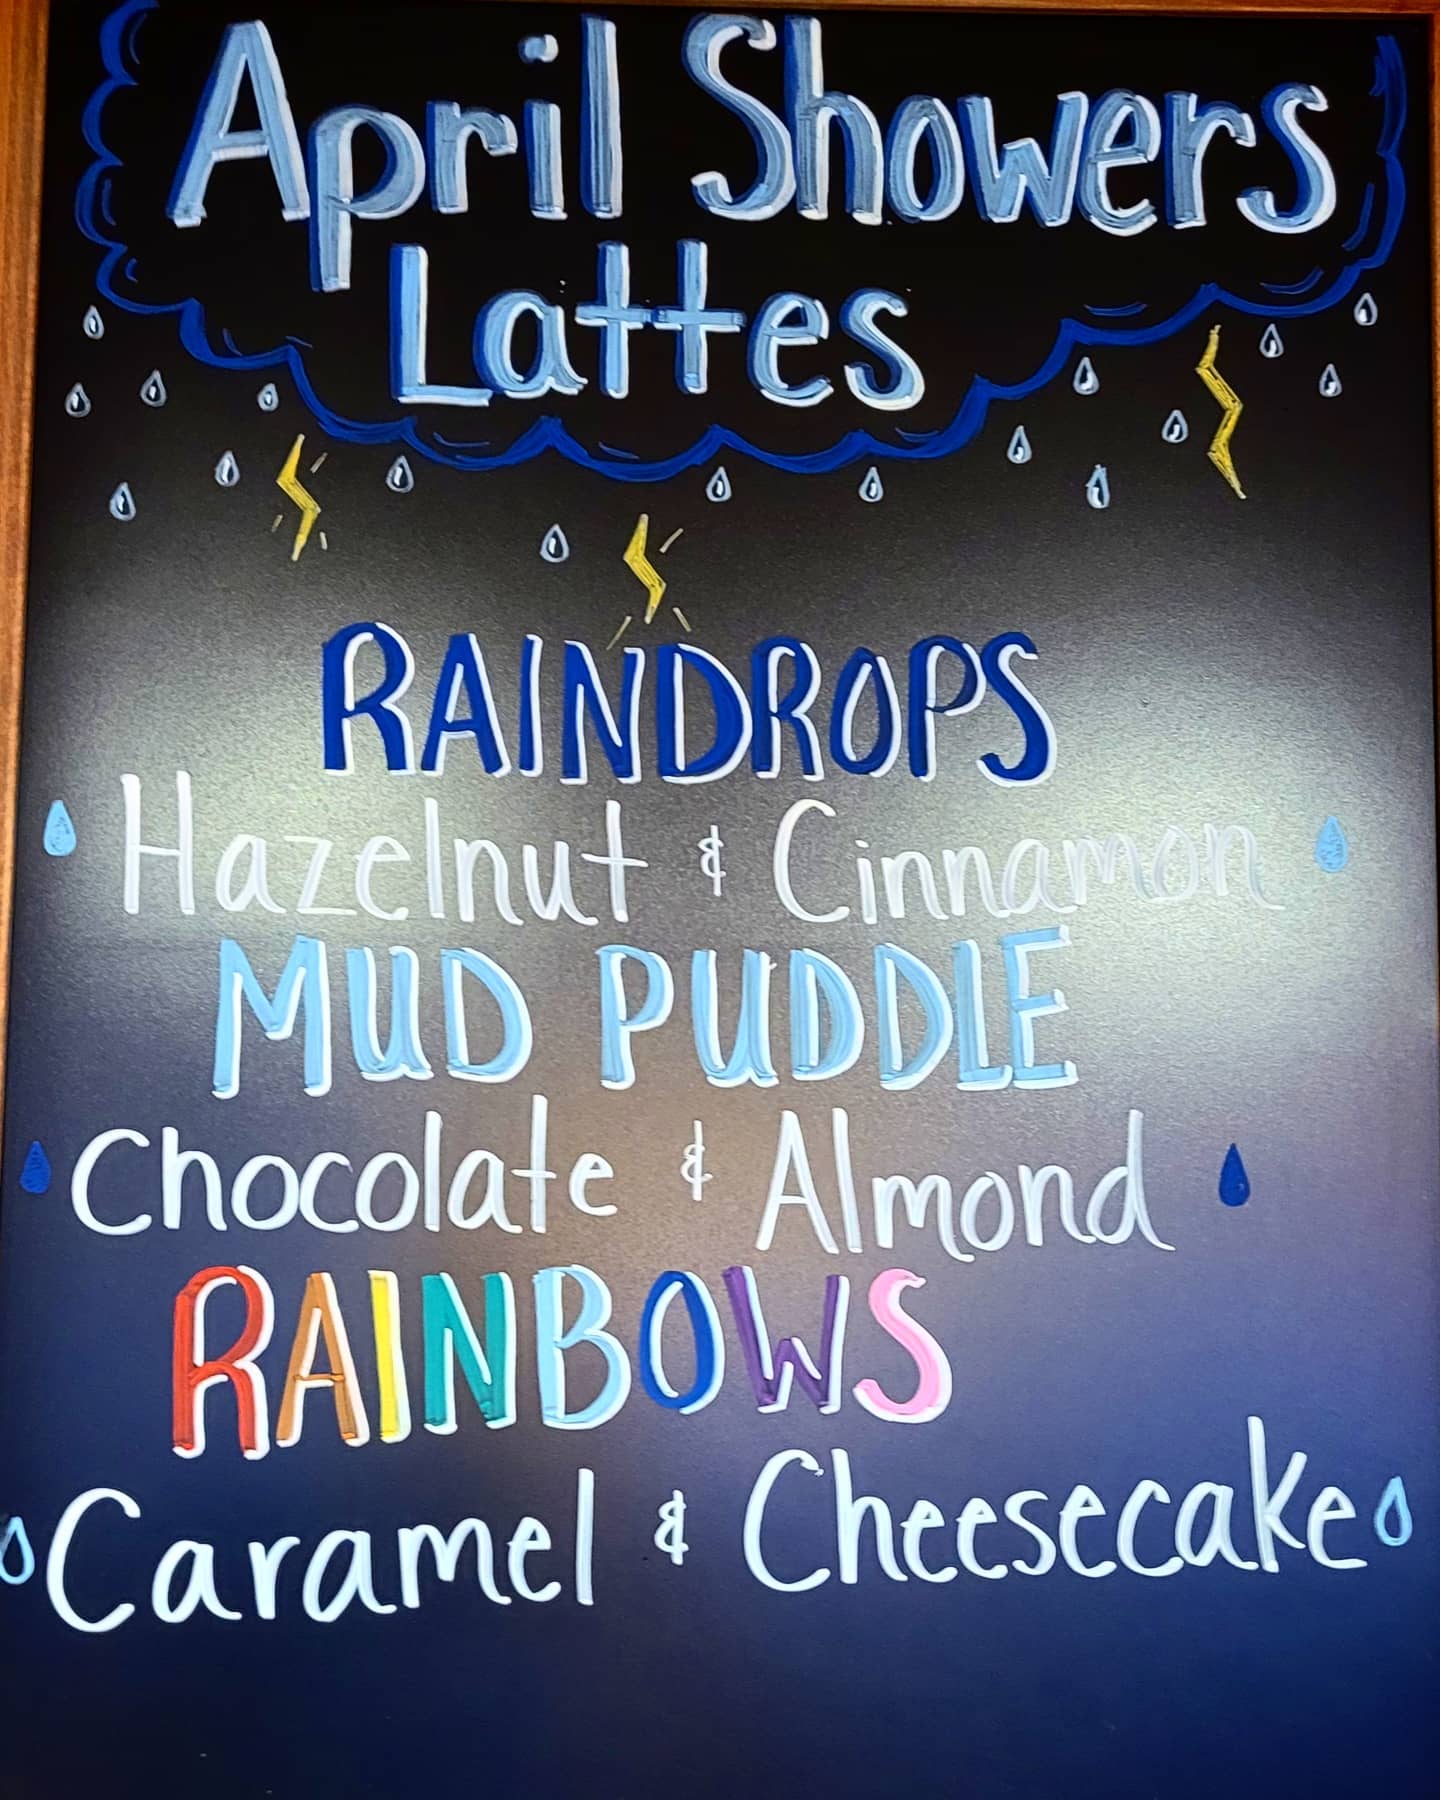 April Showers
Lattes
RAINDROPS
Hazelnut & Cinnamon
MUD PUDDLE
Chocolate & Almond
RAINBOWS
Caramel & Cheesecake